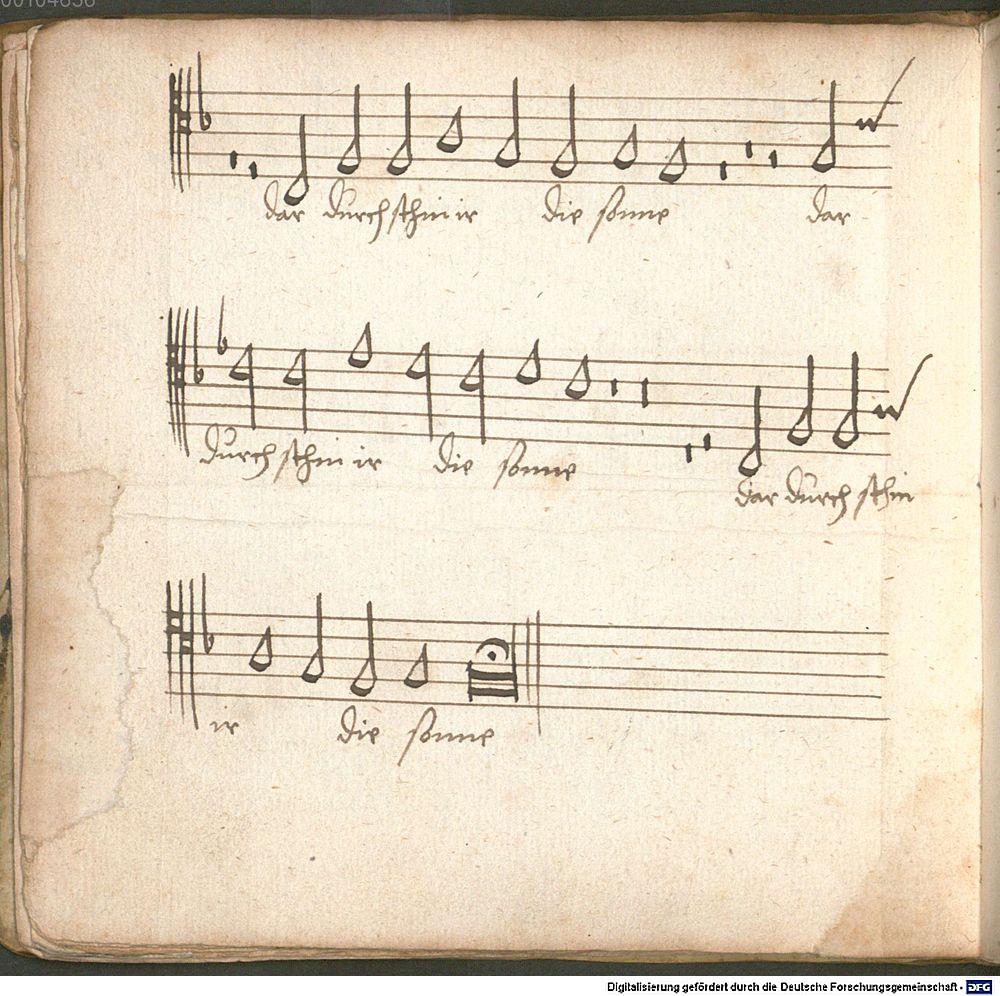 00104636
dar durch schin ir die sonne dar
durch schin ir die sonne
dar durch schin
ir die sonne
Digitalisierung gefördert durch die Deutsche Forschungsgemeinschaft - DFG